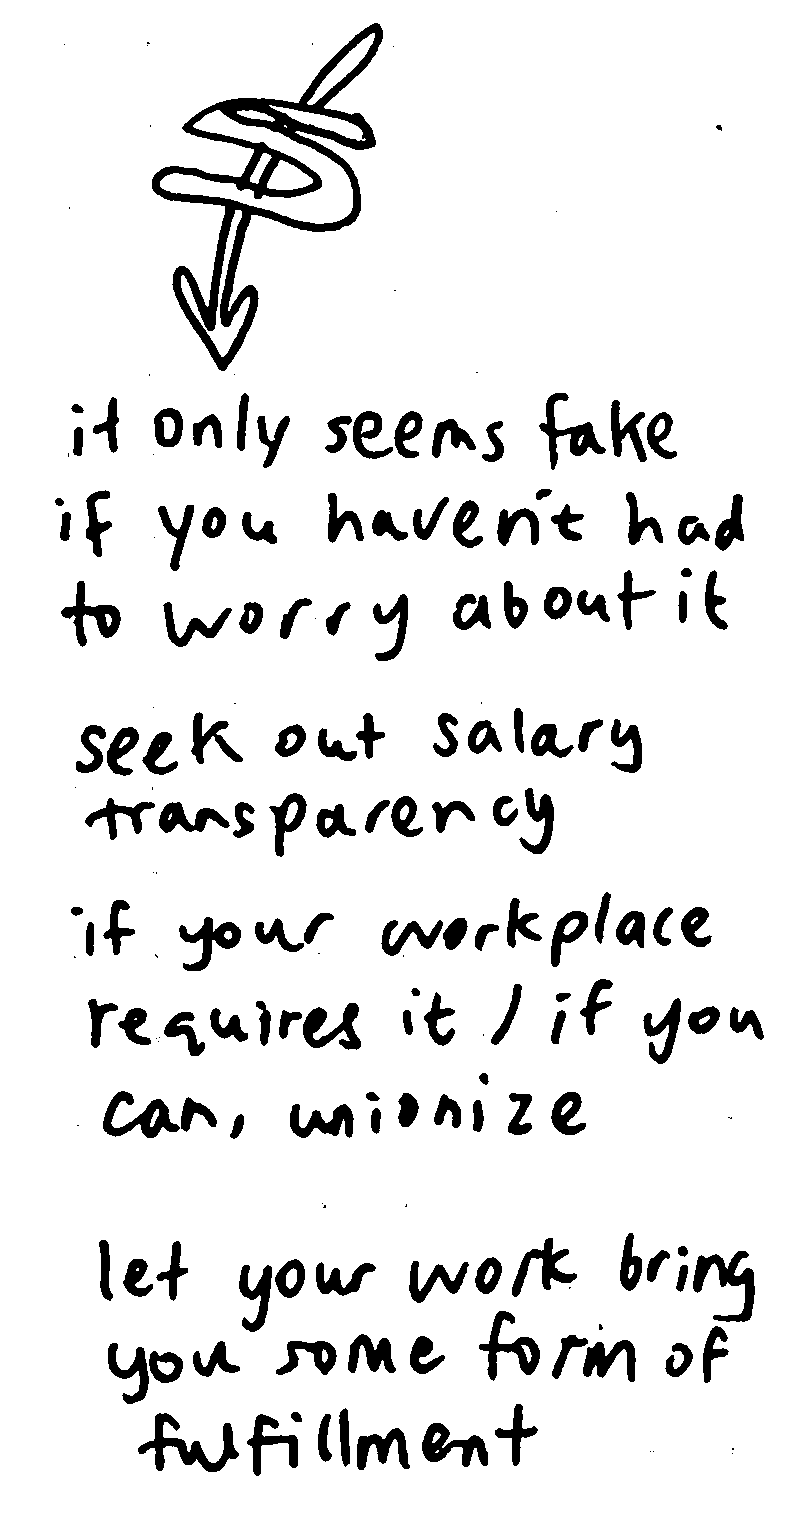 it only seems fake
if you haven't had
to worry about it
seek out salary
transparency
if your workplace
requires it / if you
can, unionize
let your work bring
you some form of
fulfillment